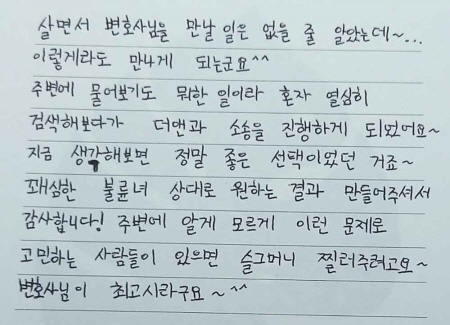 살면서 변호사님을 만날 일은 없을 줄 알았는데~...
이렇게라도 만나게 되는군요^^
주변에 물어보기도 뭐한 일이라 혼자 열심히
검색해보다가 더앤과 소송을 진행하게 되었어요~
지금 생각해보면 정말 좋은 선택이었던 거죠~
괘씸한 불륜녀 상대로 원하는 결과 만들어주셔서
감사합니다! 주변에 알게 모르게 이런 문제로
고민하는 사람들이 있으면 슬그머니 찔러주려고요~
변호사님이 최고시라구요~^^